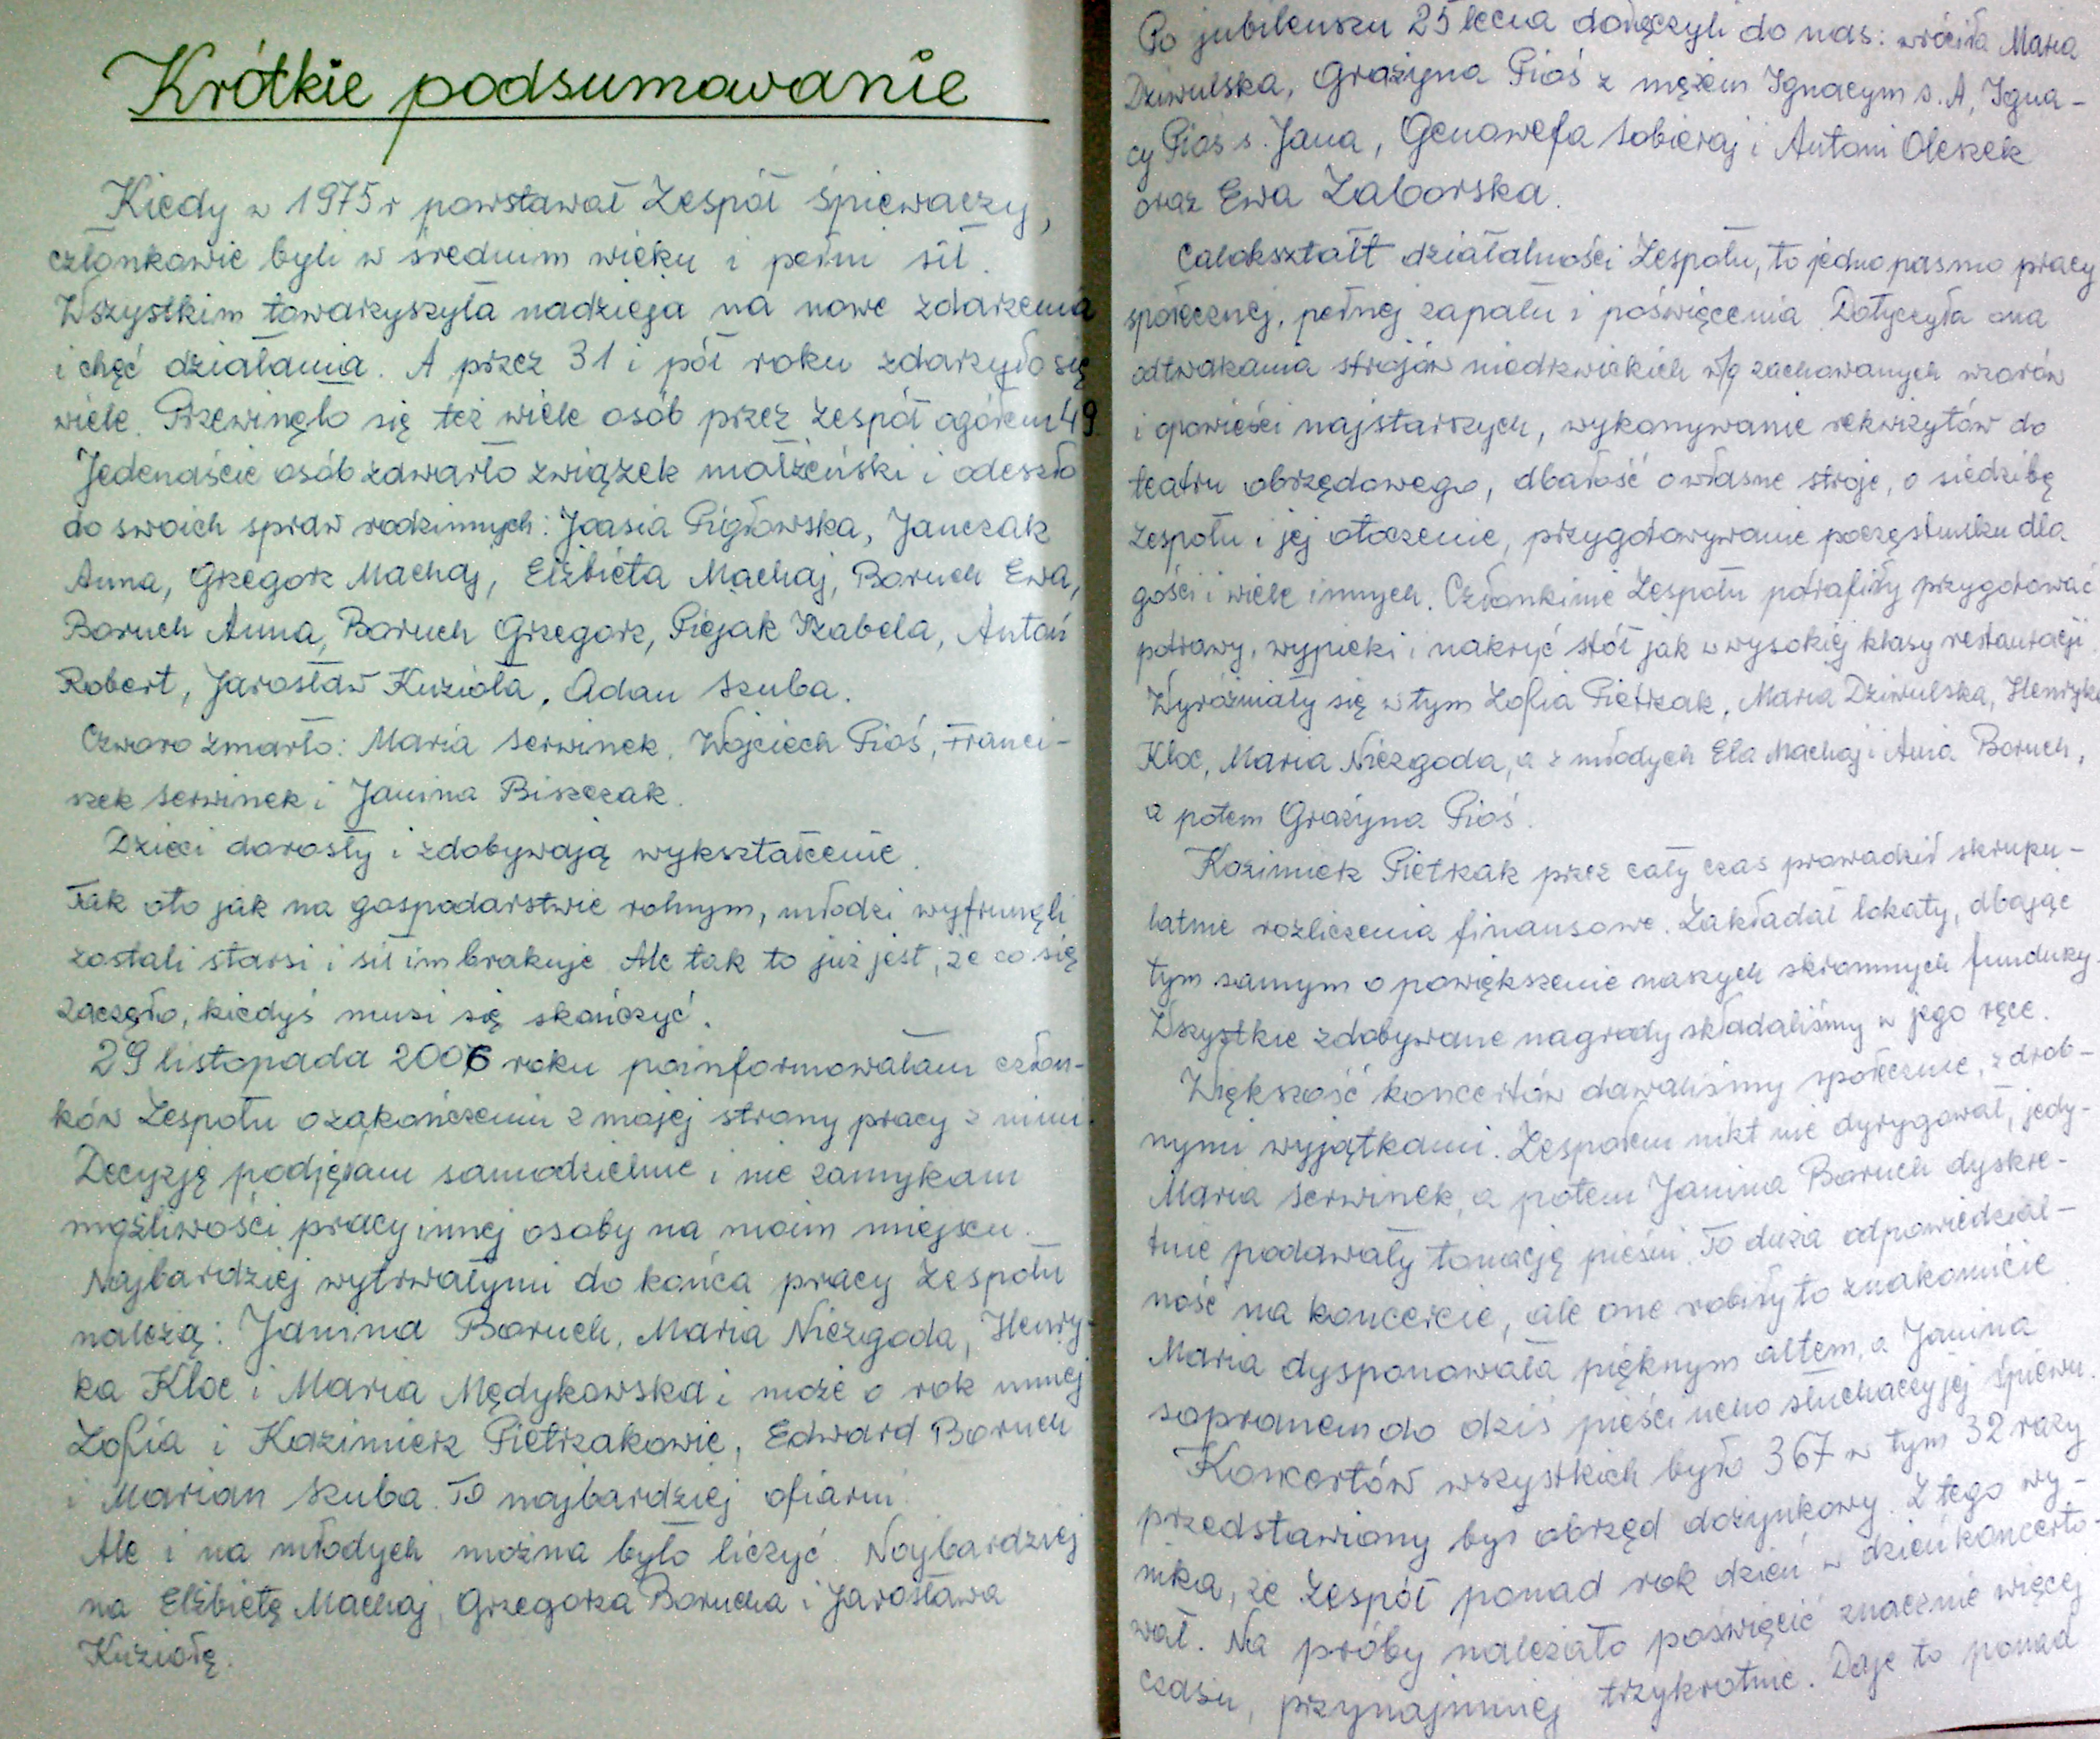 Krótkie podsumowanie
Kiedy w 1975 r powstawał Zespół śpiewaczy,
członkowie byli w średnim wieku i pełni sił.
Wszystkim towarzyszyła nadzieja na nowe zdarzenia
i chęć działania. A przez 31 i pół roku zdarzyło się
wiele. Przewinęło się też wiele osób przez zespół ogółem 49.
Jedenaście osób zawarło związek małżeński i odeszło
do swoich spraw rodzinnych: Joasia Pigłowska, Janczak
Anna, Grzegorz Machaj, Elżbieta Machaj, Boruch Ewa,
Boruch Anna, Boruch Grzegorz, Piejak Izabela, Antoń
Robert, Jarosław Kuzioła, Adam Szuba.
Czworo zmarło: Maria Serwinek, Wojciech Pioś, Franci-
szek Serwinek i Janina Biszczak.
Dzieci dorosły i zdobywają wykształcenie.
Tak oto jak na gospodarstwie rolnym, młodzi wyfrunęli
zostali starsi i sił im brakuje. Ale tak to już jest, że co się
zaczęło, kiedyś musi się skończyć.
29 listopada 2006 roku poinformowałam człon-
ków Zespołu o zakończeniu z mojej strony pracy z nimi.
Decyzję podjęłam samodzielnie i nie zamykam
możliwości pracy innej osoby na moim miejscu.
Najbardziej wytrwałymi do końca pracy Zespołu
należą: Janina Boruch, Maria Niezgoda, Henry-
ka Kloc i Maria Mędykowska i może o rok mniej
Zofia i Kazimierz Pietrzakowie, Edward Boruch
i Marian Szuba. To najbardziej ofiarni.
Ale i na młodych można było liczyć. Najbardziej
na Elżbietę Machaj, Grzegorza Borucha i Jarosława
Kuziołę.
Po jubileuszu 25 lecia dołączyli do nas: wróciła Maria
Dziwulska, Grażyna Pioś z mężem Ignacym s. A, Igna-
cy Pioś s. Jana, Genowefa Sobieraj i Antoni Oleszek
oraz Ewa Zaborska.
Całokształt działalności Zespołu, to jedno pasmo pracy
społecznej, pełnej zapału i poświęcenia. Dotyczyła ona
odtwarzania strojów niedrzwickich w/g zachowanych wzorów
i opowieści najstarszych, wykonywanie rekwizytów do
teatru obrzędowego, dbałość o własne stroje, o siedzibę
zespołu i jej otoczenie, przygotowywanie poczęstunku dla
gości i wiele innych. Członkinie Zespołu potrafiły przygotować
potrawy, wypieki i nakryć stół jak w wysokiej klasy restauracji.
Wyróżniały się w tym Zofia Pietrzak, Maria Dziwulska, Henryka
Kloc, Maria Niezgoda, a z młodych Ela Machaj i Ania Boruch,
a potem Grażyna Pioś.
Kazimierz Pietrzak przez cały czas prowadził skrupu-
latnie rozliczenia finansowe. Zakładał lokaty, dbając
tym samym o powiększenie naszych skromnych funduszy.
Wszystkie zdobywane nagrody składaliśmy w jego ręce.
Większość koncertów dawaliśmy społecznie, z drob-
nymi wyjątkami. Zespołem nikt nie dyrygował, jedy-
Maria Serwinek, a potem Janina Boruch dyskre-
tnie podawały tonację pieśni. To duża odpowiedzial-
ność na koncercie, ale one robiły to znakomicie
Maria dysponowała pięknym altem, a Janina
sopranem do dziś pieści ucho słuchaczy jej śpiewu.
Koncertów wszystkich było 367 w tym 32 razy
przedstawiony był obrzęd dożynkowy. Z tego wy-
nika, że Zespół ponad rok dzień w dzień koncerto-
wał. Na próby należało poświęcić znacznie więcej
czasu, przynajmniej trzykrotnie. Daje to ponad